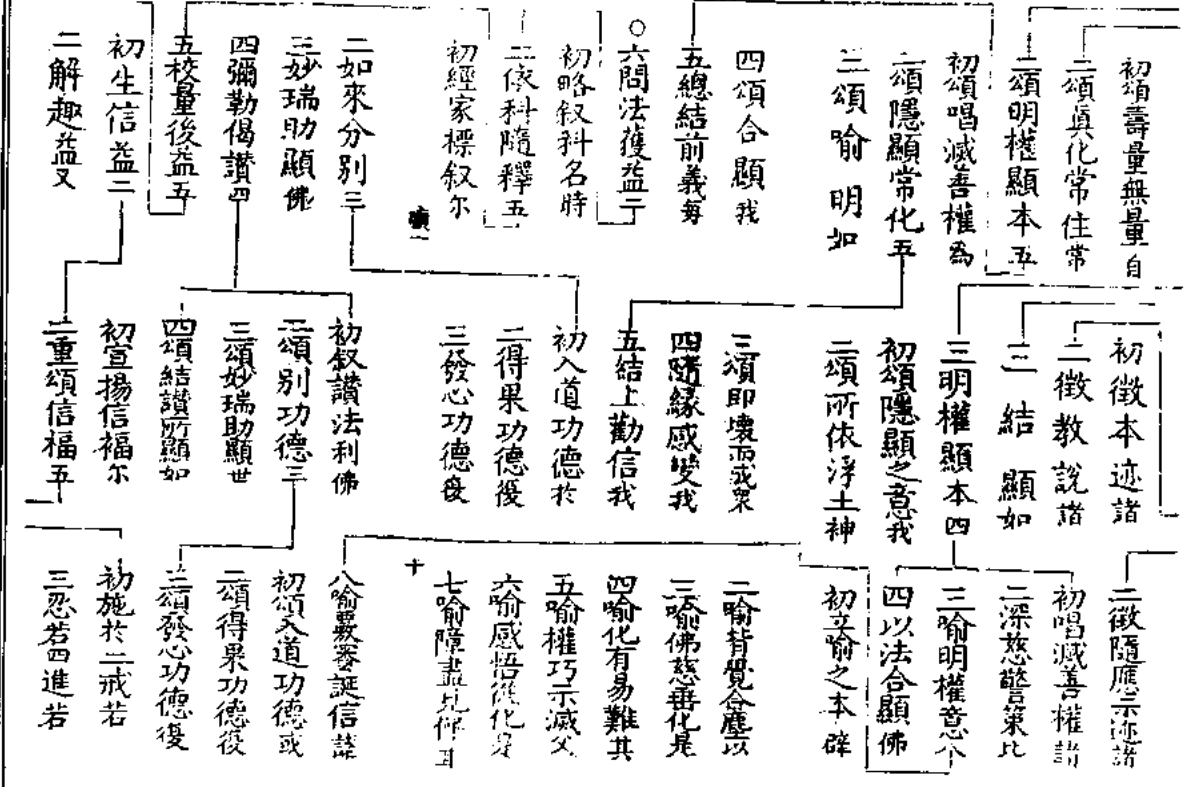 初頌壽量無量自
二頌真化常住常
二頌明權顯本五
初頌唱滅善權為
二頌隱顯常化五
三頌喻明如
四頌合顯我
五總結前義每
○六問法獲益二
初略叙科名時
二依科隨釋五
初經家標叙尔
二如來分別三
三妙瑞助顯佛
四彌勒偈讚四
五校量後益五
初生信益二
二解趣益又
初徵本迹諸
二徵教說諸
三結顯如
三明權顯本四
初頌隱顯之意我
二頌所依淨土神
三頌即壞而我眾
四隨緣感變我
五結上勸信我
初入道功德於
二得果功德復
三發心功德復
初叙讚法利佛
二頌別功德三
三頌妙瑞助顯世
四頌結讚所顯如
初宣揚信福尔
二重頌信福五
二徵隨應示迹諸
初唱滅善權諸
二深慈警策比
三喻明權意
四以法合顯佛
初立喻之本辟
二喻背覺合塵以
三喻佛慈垂化是
四喻化有易難其
五喻權巧示滅父
六喻感悟從化是
七喻障盡見佛
十
八喻覈審誕信諸
初頌入道功德或
二頌得果功德復
三頌發心功德復
初施於二戒若
三忍若四進若